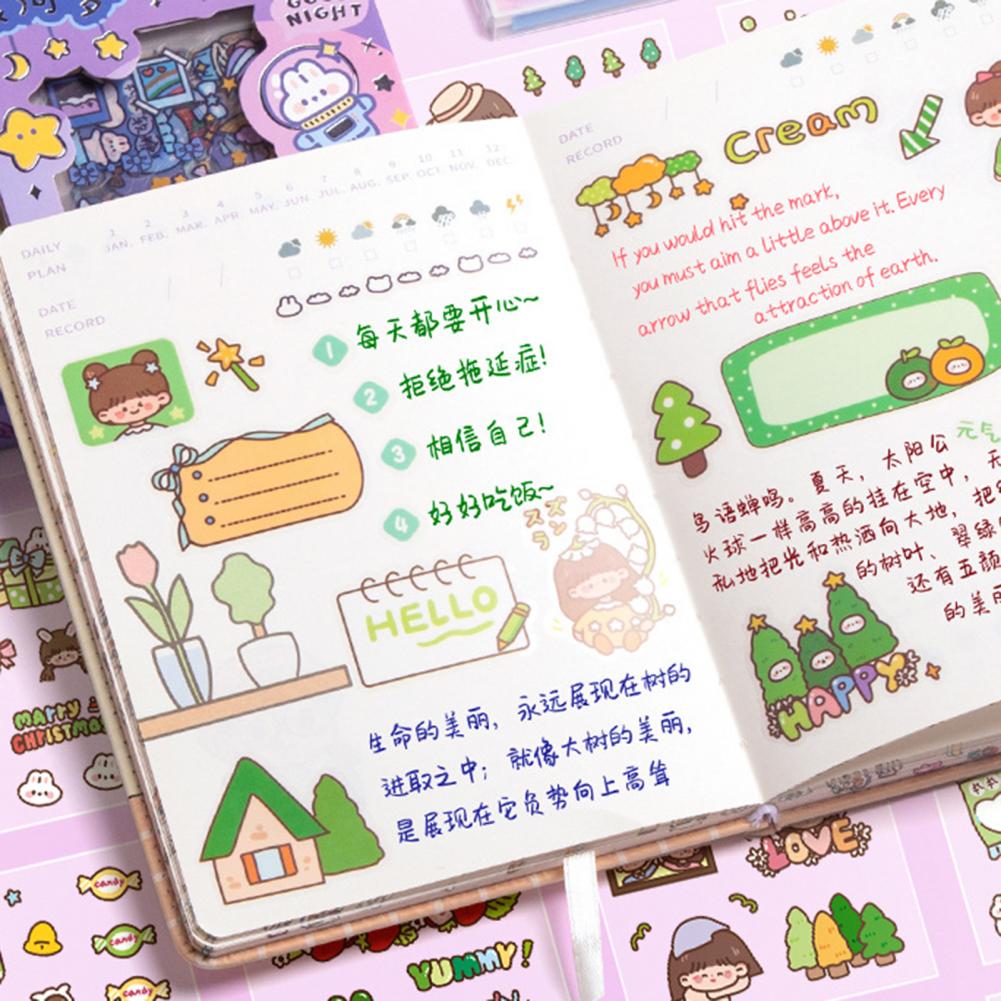 GOOD
NIGHT
DAILY
PLAN
1 2 3 4 5 6 7 8 9 10 11 12
JAN. FEB. MAR. APR. MAY. JUN. JUL. AUG. SEP. OCT. NOV. DEC.
DATE
RECORD
1 每天都要开心~
2 拒绝拖延症!
3 相信自己!
4 好好吃饭~
スズ
ラン
HELLO
生命的美丽,永远展现在树的
进取之中;就像大树的美丽,
是展现在它负势向上高耸
DATE
RECORD
Cream
If you would hit the mark,
you must aim a little above it. Every
arrow that flies feels the
attraction of earth.
元气
鸟语蝉鸣。夏天,太阳公
火球一样高高的挂在空中,无
私地把光和热洒向大地,把
的树叶、翠绿
还有五颜
的美丽
HAPPY
MARRY
CHRISTMAS
candy
candy
candy
YUMMY!
LOVE